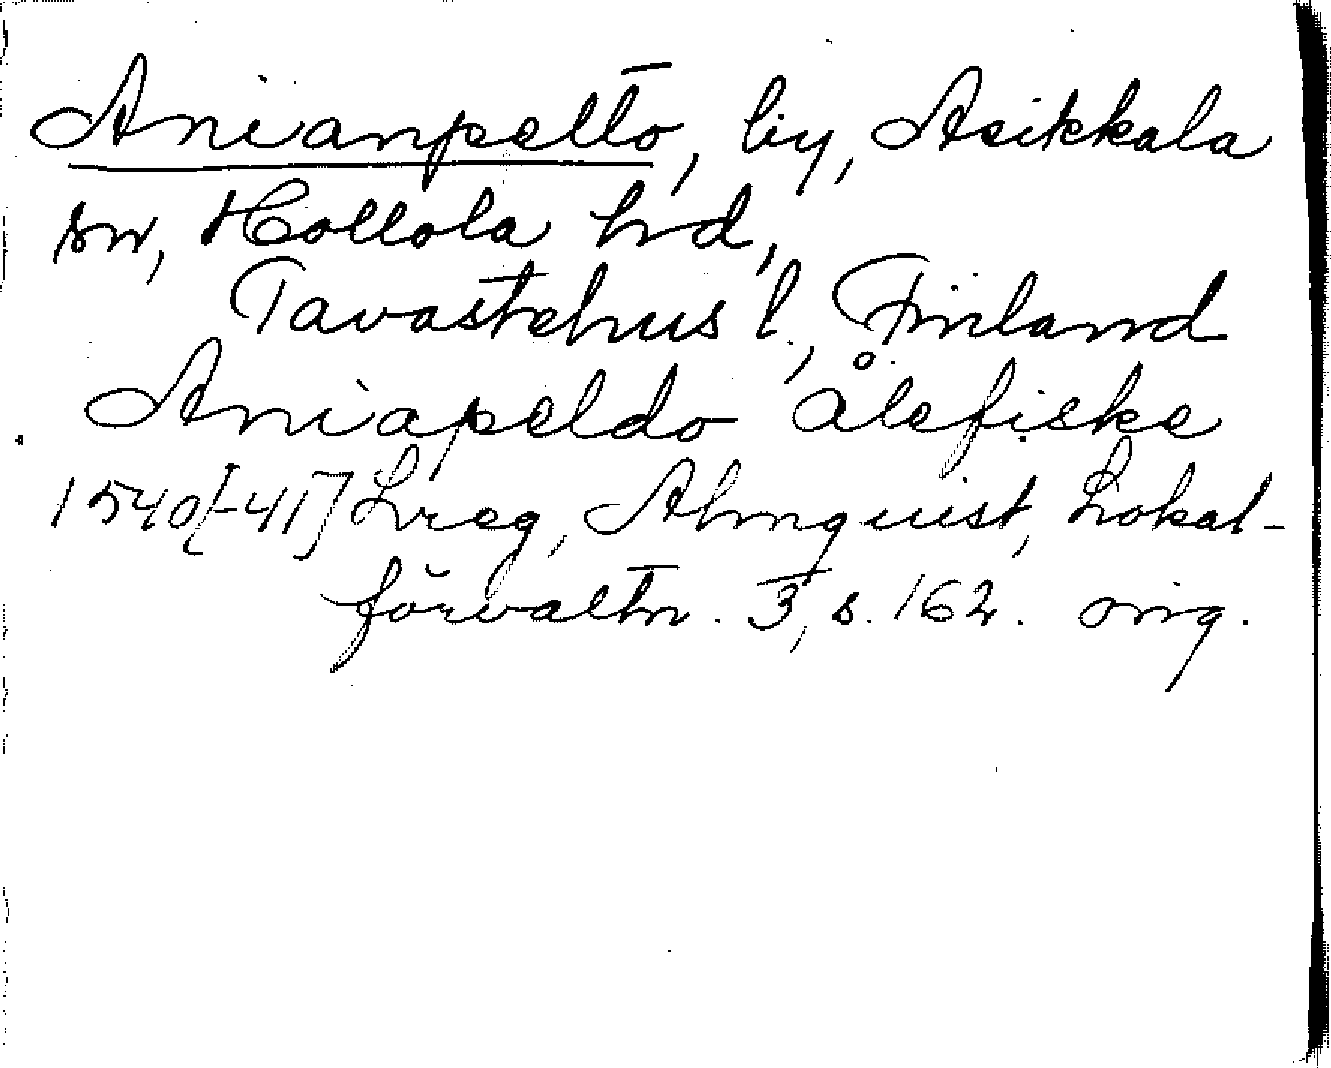 Anianpelto, by, Asikkala
sn, Hollola hd,
Tavastehus l., Finland
Aniapeldo ålefiske
1540[-41] Lreg, Almquist, Lokal-
förvaltn. 3, s. 162. orig.